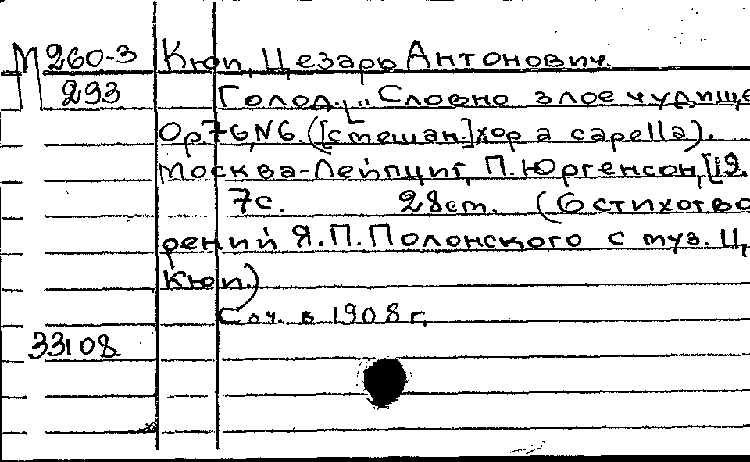 М 260-3 Кюи, Цезарь Антонович.
293 Голод. „Словно злое чудище
Op.76, N6. ([смешан.] хор a capella).
Москва-Лейпциг, П.Юргенсон, [19.
7с. 28см. (6 стихотво
рений Я.П.Полонского с муз. Ц.
Кюи.)
Соч. в 1908 г.
33108